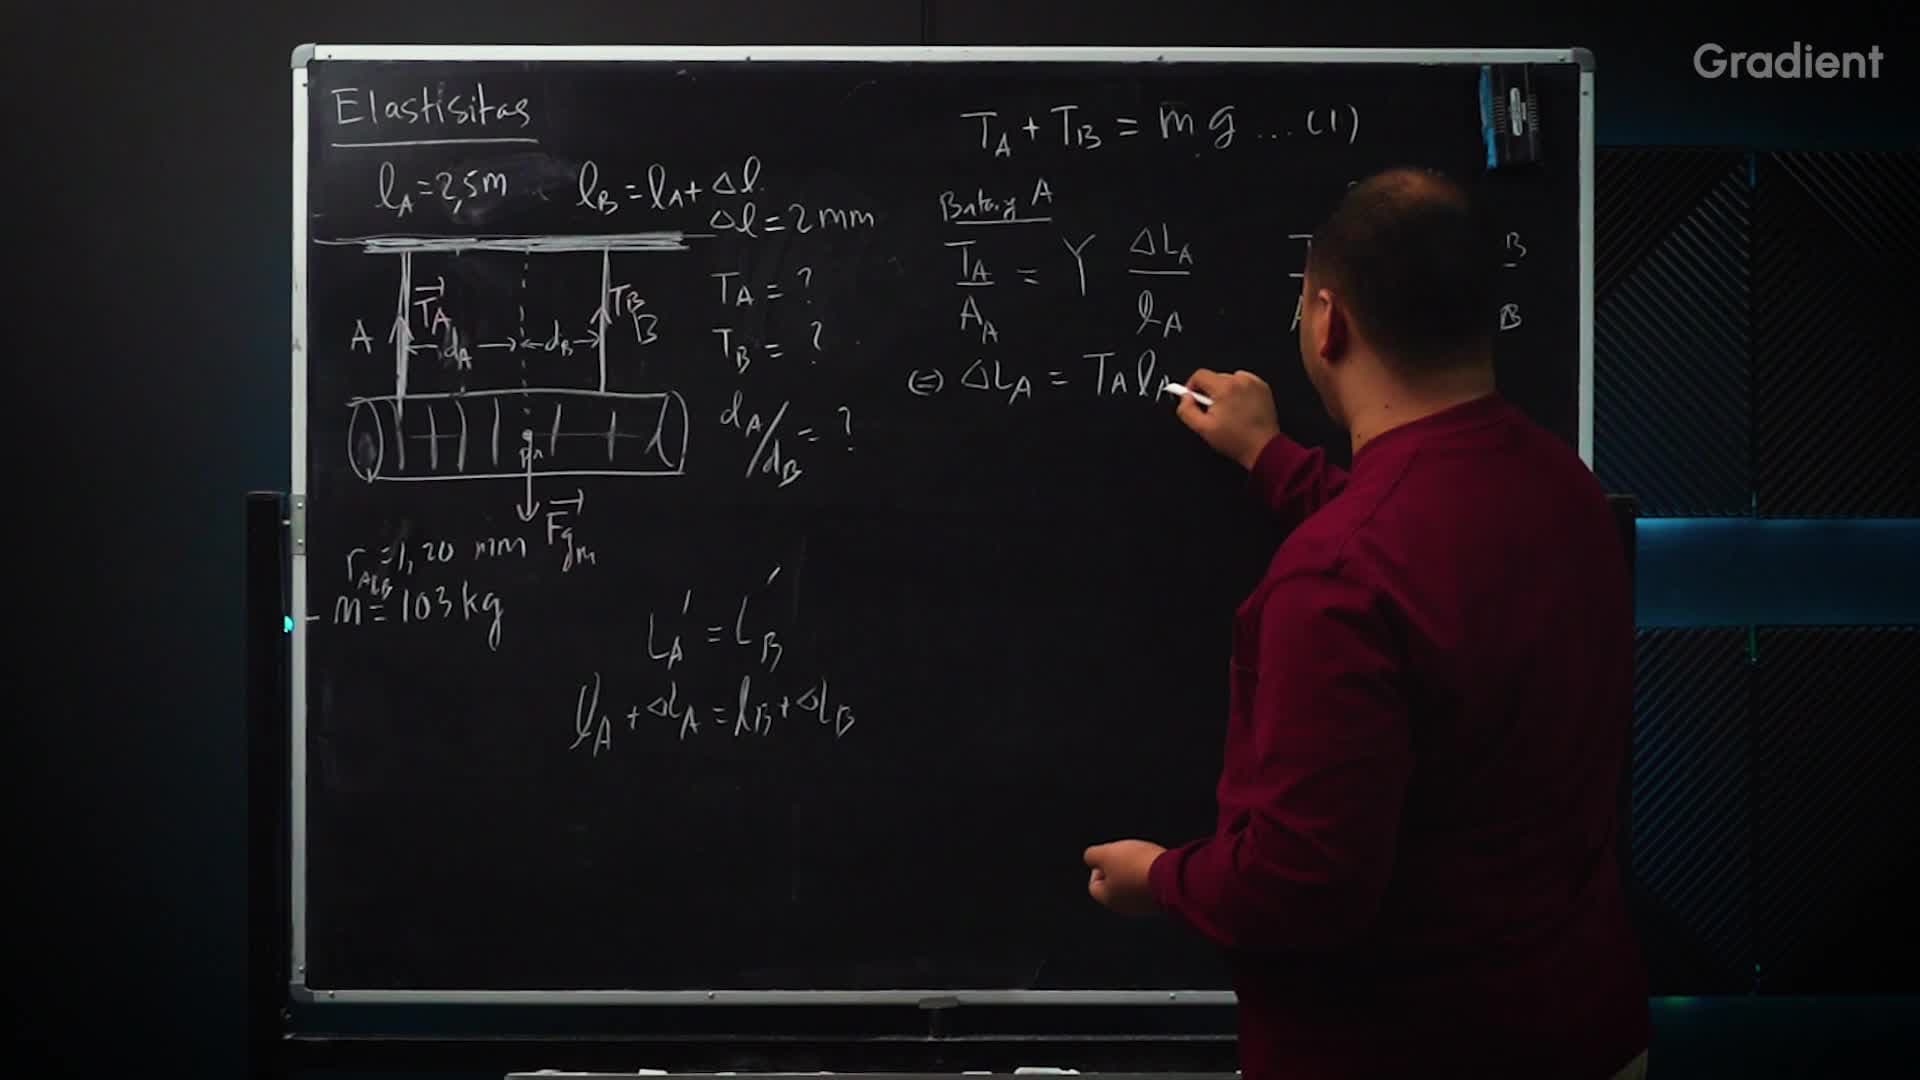 Gradient
Elastisitas
l_A = 2,5 m
l_B = l_A + Δl
Δl = 2 mm
T_A = ?
T_B = ?
d_A/d_B = ?
A
T_A
d_A
d_B
T_B
B
F_gm
r_A&B = 1,20 mm
m = 103 kg
L_A' = L_B'
l_A + ΔL_A = l_B + ΔL_B
T_A + T_B = m g ... (1)
Batang A
T_A/A_A = Y ΔL_A/l_A
B
B
⇔ ΔL_A = T_A l_A